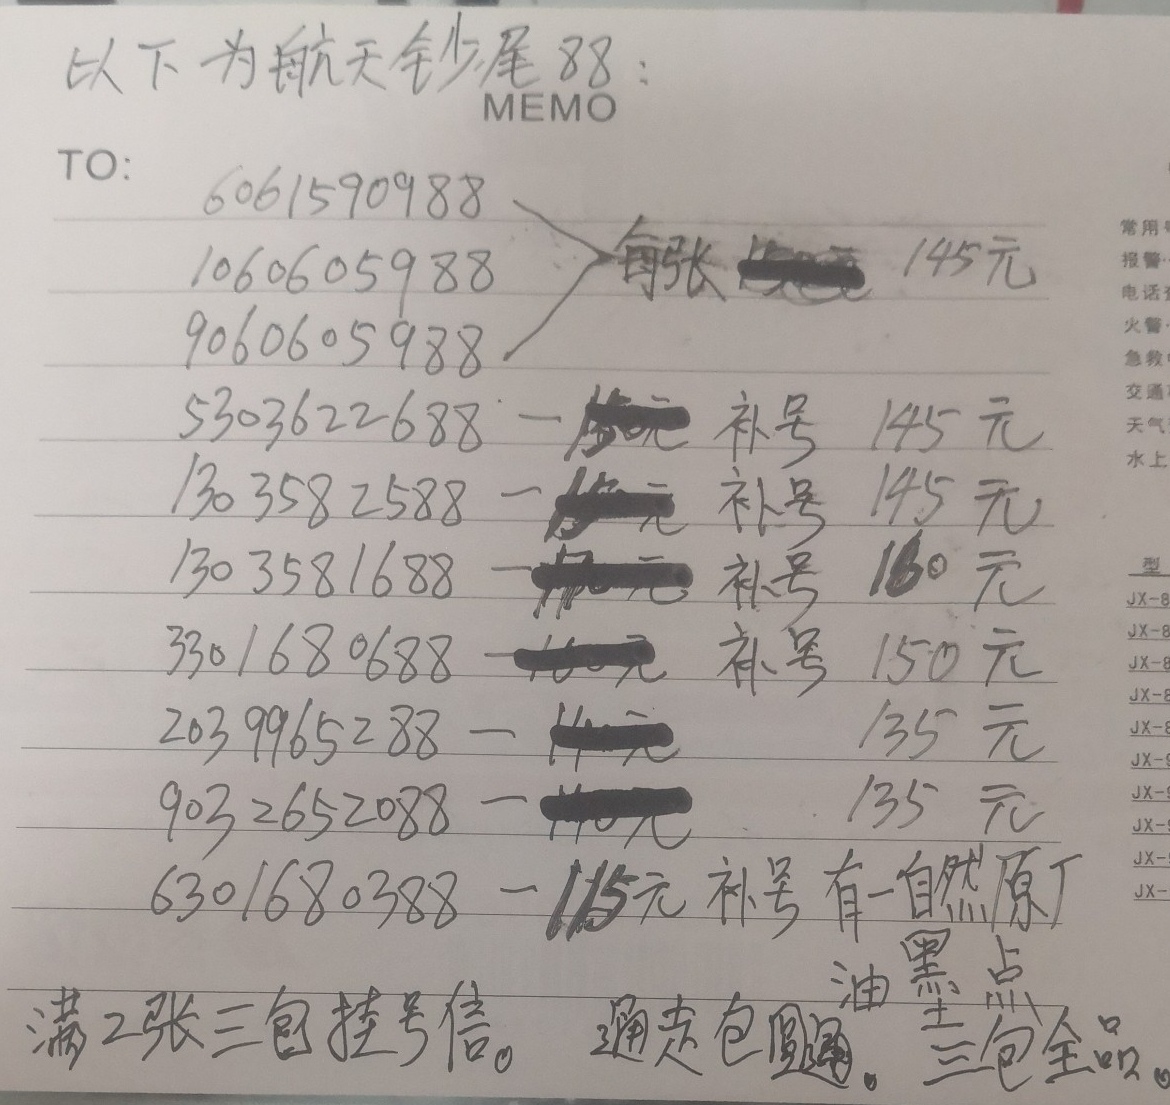 以下为航天钞尾88：
MEMO
TO:
6061590988
1060605988
每张 145元
9060605988
5303622688 — 补号 145元
1303582588 — 补号 145元
1303581688 — 补号 160元
3301680688 — 补号 150元
2039965288 — 135元
9032652088 — 135元
6301680388 — 115元 补号 有一自然原厂
油墨点
满2张三包挂号信。 通走包圆通。 三包全品。
常用
报警
电话
火警
急救
交通
天气
水上
型
JX-8
JX-8
JX-8
JX-8
JX-8
JX-
JX-
JX-
JX-
JX-